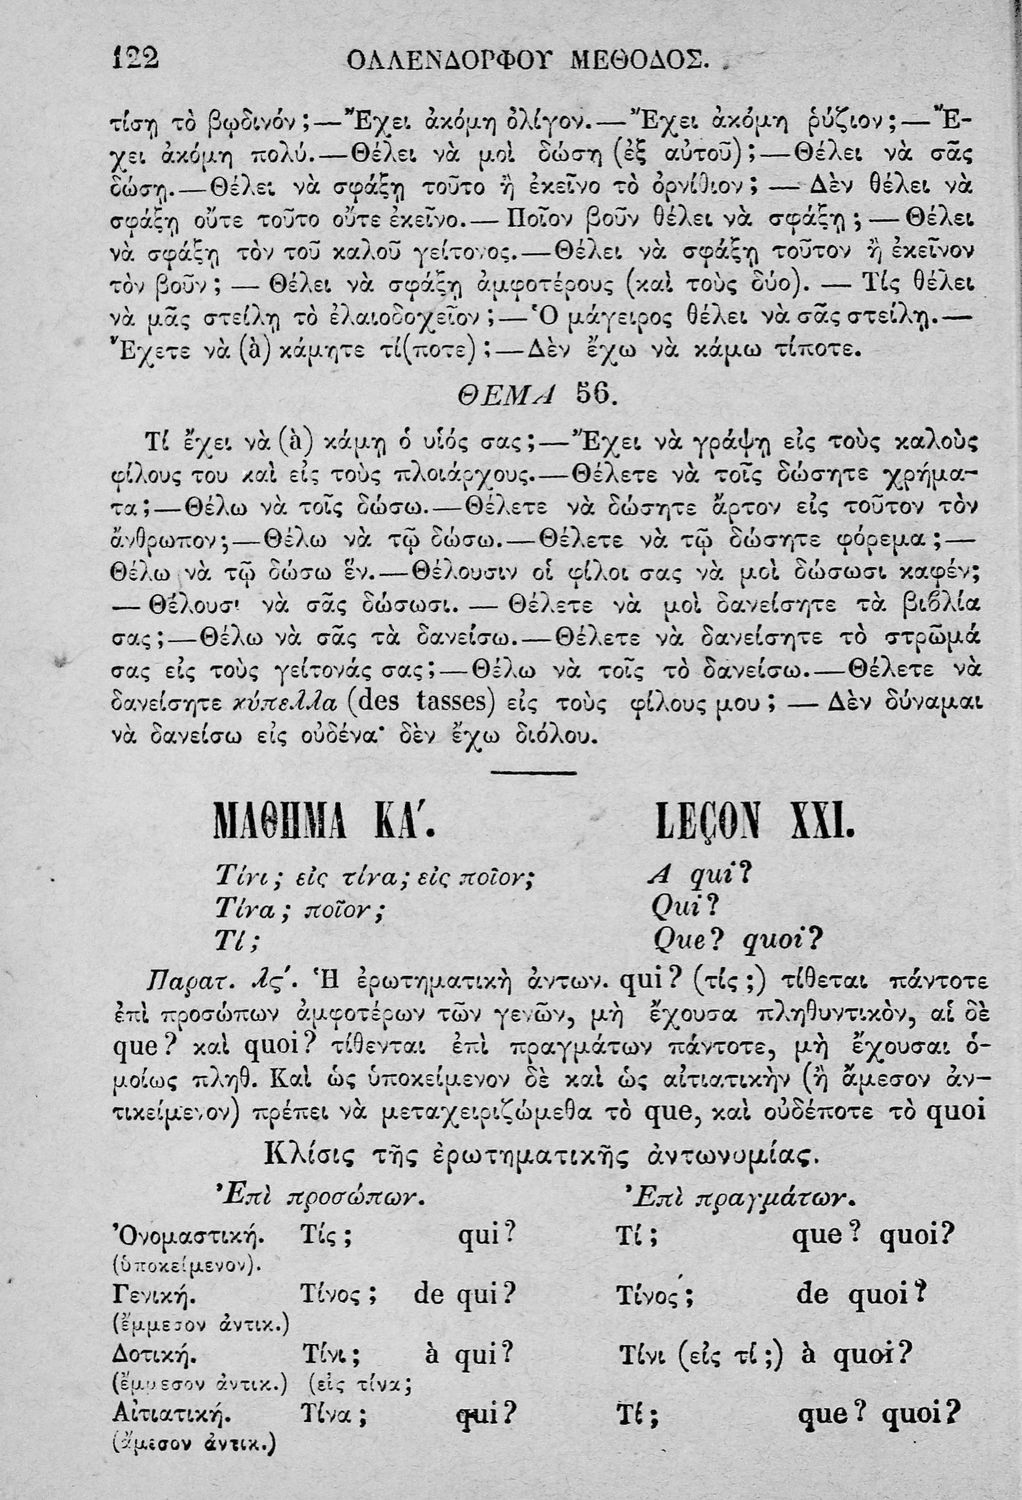 122 ΟΛΛΕΝΔΟΡΦΟΥ ΜΕΘΟΔΟΣ.
τίσῃ τὸ βῳδινόν;—Ἔχει ἀκόμη ὀλίγον.—Ἔχει ἀκόμη ῥύζιον;—Ἔ-
χει ἀκόμη πολύ.—Θέλει νὰ μοὶ δώσῃ (ἐξ αὐτοῦ);—Θέλει νὰ σᾶς
δώσῃ.—Θέλει νὰ σφάξῃ τοῦτο ἢ ἐκεῖνο τὸ ὀρνίθιον; — Δὲν θέλει νὰ
σφάξῃ οὔτε τοῦτο οὔτε ἐκεῖνο.— Ποῖον βοῦν θέλει νὰ σφάξῃ; — Θέλει
νὰ σφάξῃ τὸν τοῦ καλοῦ γείτονος.—Θέλει νὰ σφάξῃ τοῦτον ἢ ἐκεῖνον
τὸν βοῦν; — Θέλει νὰ σφάξῃ ἀμφοτέρους (καὶ τοὺς δύο). — Τίς θέλει
νὰ μᾶς στείλῃ τὸ ἐλαιοδοχεῖον;—Ὁ μάγειρος θέλει νὰ σᾶς στείλῃ.—
Ἔχετε νὰ (à) κάμητε τί(ποτε);—Δὲν ἔχω νὰ κάμω τίποτε.
ΘΕΜΑ 56.
Τί ἔχει νὰ (à) κάμῃ ὁ υἱός σας;—Ἔχει νὰ γράψῃ εἰς τοὺς καλοὺς
φίλους του καὶ εἰς τοὺς πλοιάρχους.—Θέλετε νὰ τοῖς δώσητε χρήμα-
τα;—Θέλω νὰ τοῖς δώσω.—Θέλετε νὰ δώσητε ἄρτον εἰς τοῦτον τὸν
ἄνθρωπον;—Θέλω νὰ τῷ δώσω.—Θέλετε νὰ τῷ δώσητε φόρεμα;—
Θέλω νὰ τῷ δώσω ἕν.—Θέλουσιν οἱ φίλοι σας νὰ μοὶ δώσωσι καφέν;
— Θέλουσι νὰ σᾶς δώσωσι. — Θέλετε νὰ μοὶ δανείσητε τὰ βιβλία
σας;—Θέλω νὰ σᾶς τὰ δανείσω.—Θέλετε νὰ δανείσητε τὸ στρῶμά
σας εἰς τοὺς γείτονάς σας;—Θέλω νὰ τοῖς τὸ δανείσω.—Θέλετε νὰ
δανείσητε κύπελλα (des tasses) εἰς τοὺς φίλους μου; — Δὲν δύναμαι
νὰ δανείσω εἰς οὐδένα· δὲν ἔχω διόλου.
ΜΑΘΗΜΑ ΚΑ΄. LEÇON XXI.
Τίνι; εἰς τίνα; εἰς ποῖον; A qui?
Τίνα; ποῖον; Qui?
Τί; Que? quoi?
Παρατ. λς΄. Ἡ ἐρωτηματικὴ ἀντων. qui? (τίς;) τίθεται πάντοτε
ἐπὶ προσώπων ἀμφοτέρων τῶν γενῶν, μὴ ἔχουσα πληθυντικὸν, αἱ δὲ
que? καὶ quoi? τίθενται ἐπὶ πραγμάτων πάντοτε, μὴ ἔχουσαι ὁ-
μοίως πληθ. Καὶ ὡς ὑποκείμενον δὲ καὶ ὡς αἰτιατικὴν (ἢ ἄμεσον ἀν-
τικείμενον) πρέπει νὰ μεταχειριζώμεθα τὸ que, καὶ οὐδέποτε τὸ quoi
Κλίσις τῆς ἐρωτηματικῆς ἀντωνυμίας.
Ἐπὶ προσώπων. Ἐπὶ πραγμάτων.
Ὀνομαστική. Τίς; qui? Τί; que? quoi?
(ὑποκείμενον).
Γενική. Τίνος; de qui? Τίνος; de quoi?
(ἔμμεσον ἀντικ.)
Δοτική. Τίνι; à qui? Τίνι (εἰς τί;) à quoi?
(ἔμμεσον ἀντικ.) (εἰς τίνα;
Αἰτιατική. Τίνα; qui? Τί; que? quoi?
(ἄμεσον ἀντικ.)